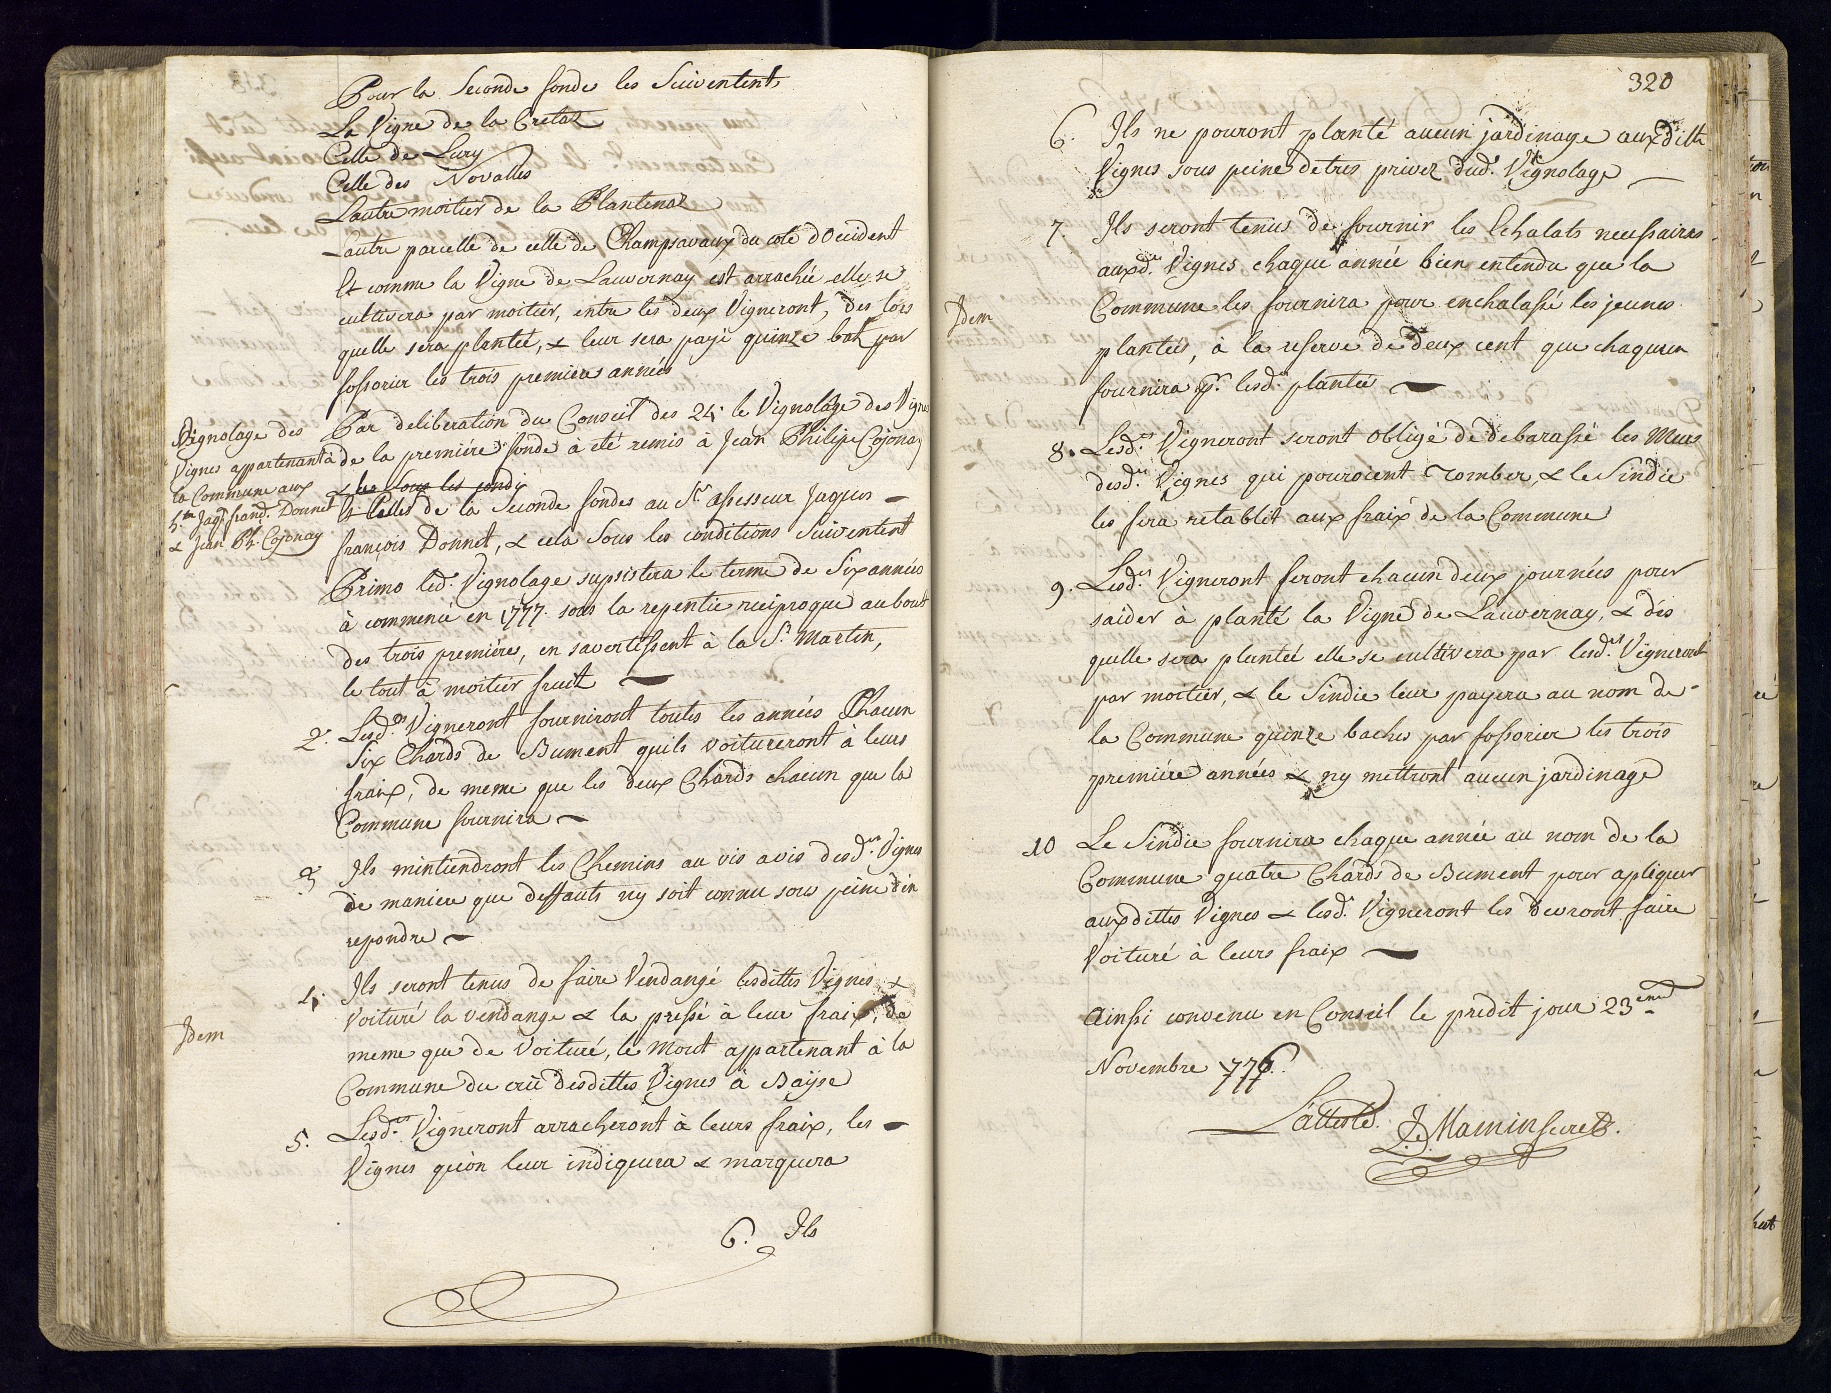 Pour la Seconde fonde les Suiventent
La Vigne de la Cretaz
Celle de Lury
Celle des Novalles
Lautre moitier de la Plantenaz
Lautre parcelle de celle de Champsavaux du coté dOccident
Et comme la Vigne de Lauvernay est arrachée elle se
cultivera par moitier, entre les deux Vigneront, des lors
quelle sera plantée, & leur sera payé quinze batz par
fossorier les trois premieres années
Vignolage des
Vignes appartenant à
la Commune aux
Sr. Jaqs. frand. Donnet
& Jean Ph. Cojonay
Par deliberation du Conseil des 24. le Vignolage des Vignes
de la premiére fonde à eté remis à Jean Philipe Cojonay
& les sous les condi
& Celles de la Seconde fondes au Sr. assesseur Jaques
françois Donnet, & cela Sous les conditions Suiventent
Primo led. Vignolage supsistera le terme de Six années
à commencé en 1777. sous la repentie reciproque au bout
des trois premiéres, en savertissent à la St. Martin,
le tout à moitier fruit
2. Lesds. Vigneront fourniront toutes les années Chacun
Six Chards de Bument quils voitureront à leurs
fraix, de meme que les deux Chards chacun que la
Commune fournira
3 Ils mintiendront les Chemins au vis avis desdes. Vignes
de maniere que deffauts ny soit connu sous peine d'en
repondre
4. Ils seront tenus de faire Vendangé lesdittes Vignes &
Voituré la vendange & la pressé à leur fraix, de
Idem
meme que de Voituré, le Mout appartenant à la
Commune du crû desdittes Vignes à Bayse
5. Lesds. Vigneront arracheront à leurs fraix, les
Vignes qu'on leur indiquera & marquera
6. Ils
320
6. Ils ne pouront planté aucun jardinage auxditte
Vignes sous peine detres privez dud. Vignolage
7. Ils seront tenus de fournir les Echalats necessaires
auxdes. Vignes chaque année bien entendu que la
Idem
Commune les fournira pour enchalassé les jeunes
plantées, à la reserve de deux cent que chaquun
fournira pr. lesd. plantée
8. Lesds. Vigneront seront obligé de debarassé les Murs
desd. Vignes qui pouroient tomber, & le Sindic
les fera retablit aux fraix de la Commune
9. Lesds. Vigneront feront chacun deux journées pour
saider à planté la Vigne de Lauvernay, & dès
quelle sera plantée elle se cultivera par lesds. Vigneront
par moitier, & le Sindic leur payera au nom de
la Commune quinze baches par fossorier les trois
premiére années & ny mettront aucun jardinage
10 Le Sindic fournira chaque année au nom de la
Commune quatre Chards de Bument pour apliquer
auxdittes Vignes & lesd. Vigneront les devront faire
Voituré à leurs fraix
Ainssi convenu en Conseil le predit jour 23eme
Novembre 1776.
L'atteste. J. D. Mamin secret.